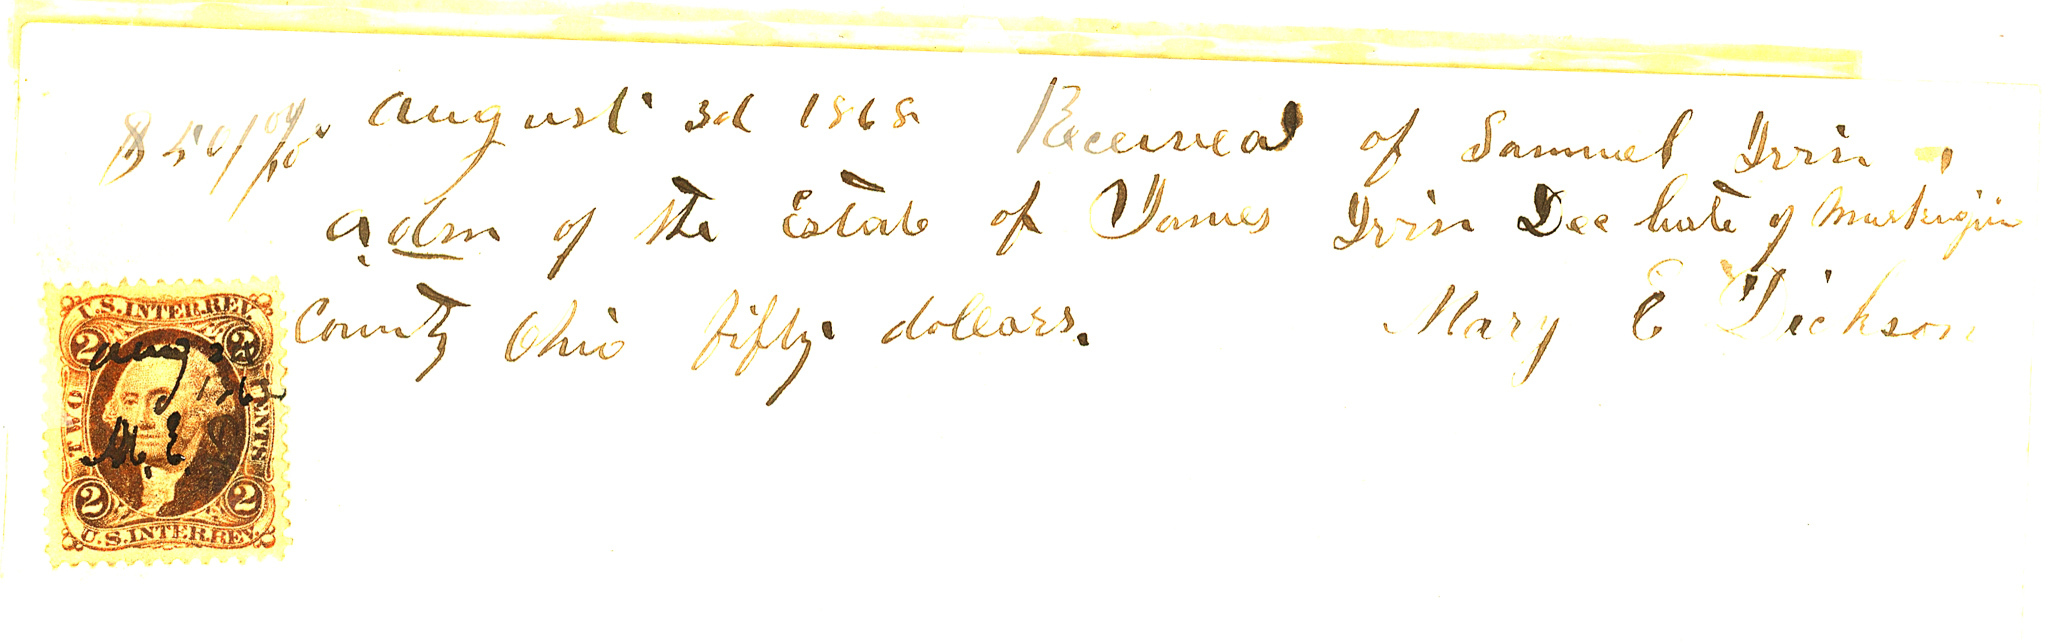 $50/00/100 August 3d 1868 Received of Samuel Irvin
adm of the Estate of James Irvin Dec late of Muskingum
County Ohio fifty dollars. Mary E Dickson
U.S. INTER. REV.
2 2
Aug 3d
1868
TWO CENTS
M. E. D
2 2
U.S. INTER. REV.